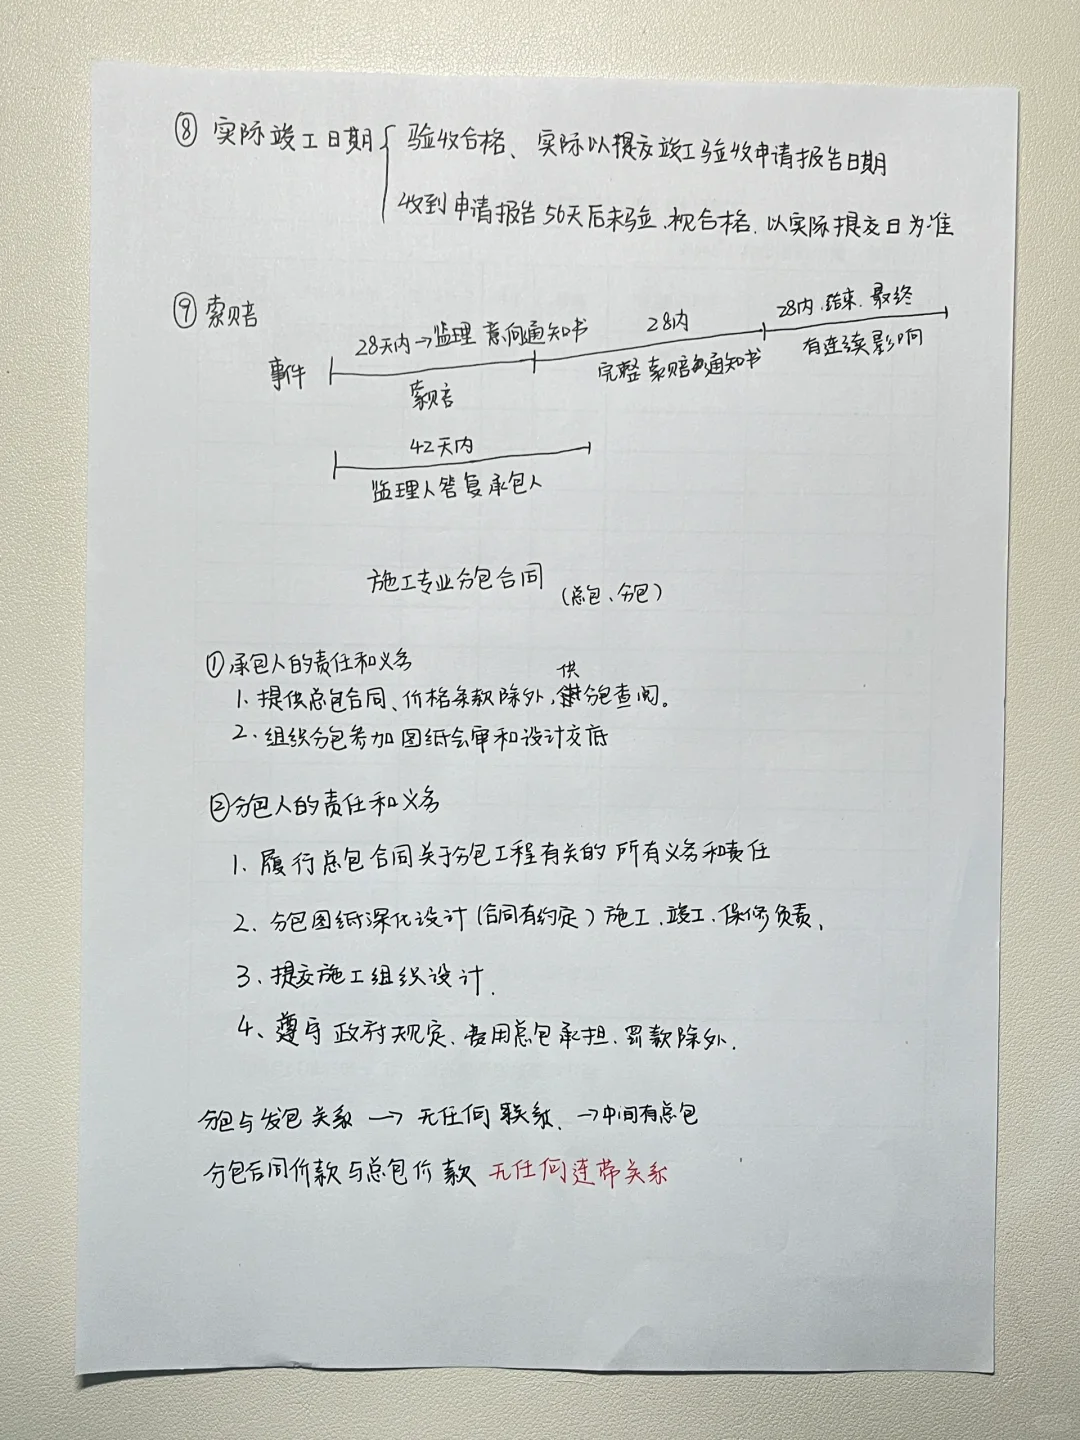 ⑧ 实际竣工日期 { 验收合格、实际以提交竣工验收申请报告日期
收到申请报告56天后未验、视合格、以实际提交日为准
⑨ 索赔
事件
28天内→监理 意向通知书
索赔
28内
完整索赔通知书
28内.结束.最终
有连续影响
42天内
监理人答复承包人
施工专业分包合同 (总包、分包)
①承包人的责任和义务
1. 提供总包合同、价格条款除外,供分包查阅。
2. 组织分包参加图纸会审和设计交底
②分包人的责任和义务
1. 履行总包合同关于分包工程有关的所有义务和责任
2、分包图纸深化设计(合同有约定)施工、竣工、保修负责、
3、提交施工组织设计.
4、遵守政府规定、费用总包承担、罚款除外.
分包与发包关系 → 无任何联系、→中间有总包
分包合同价款与总包价款 无任何连带关系